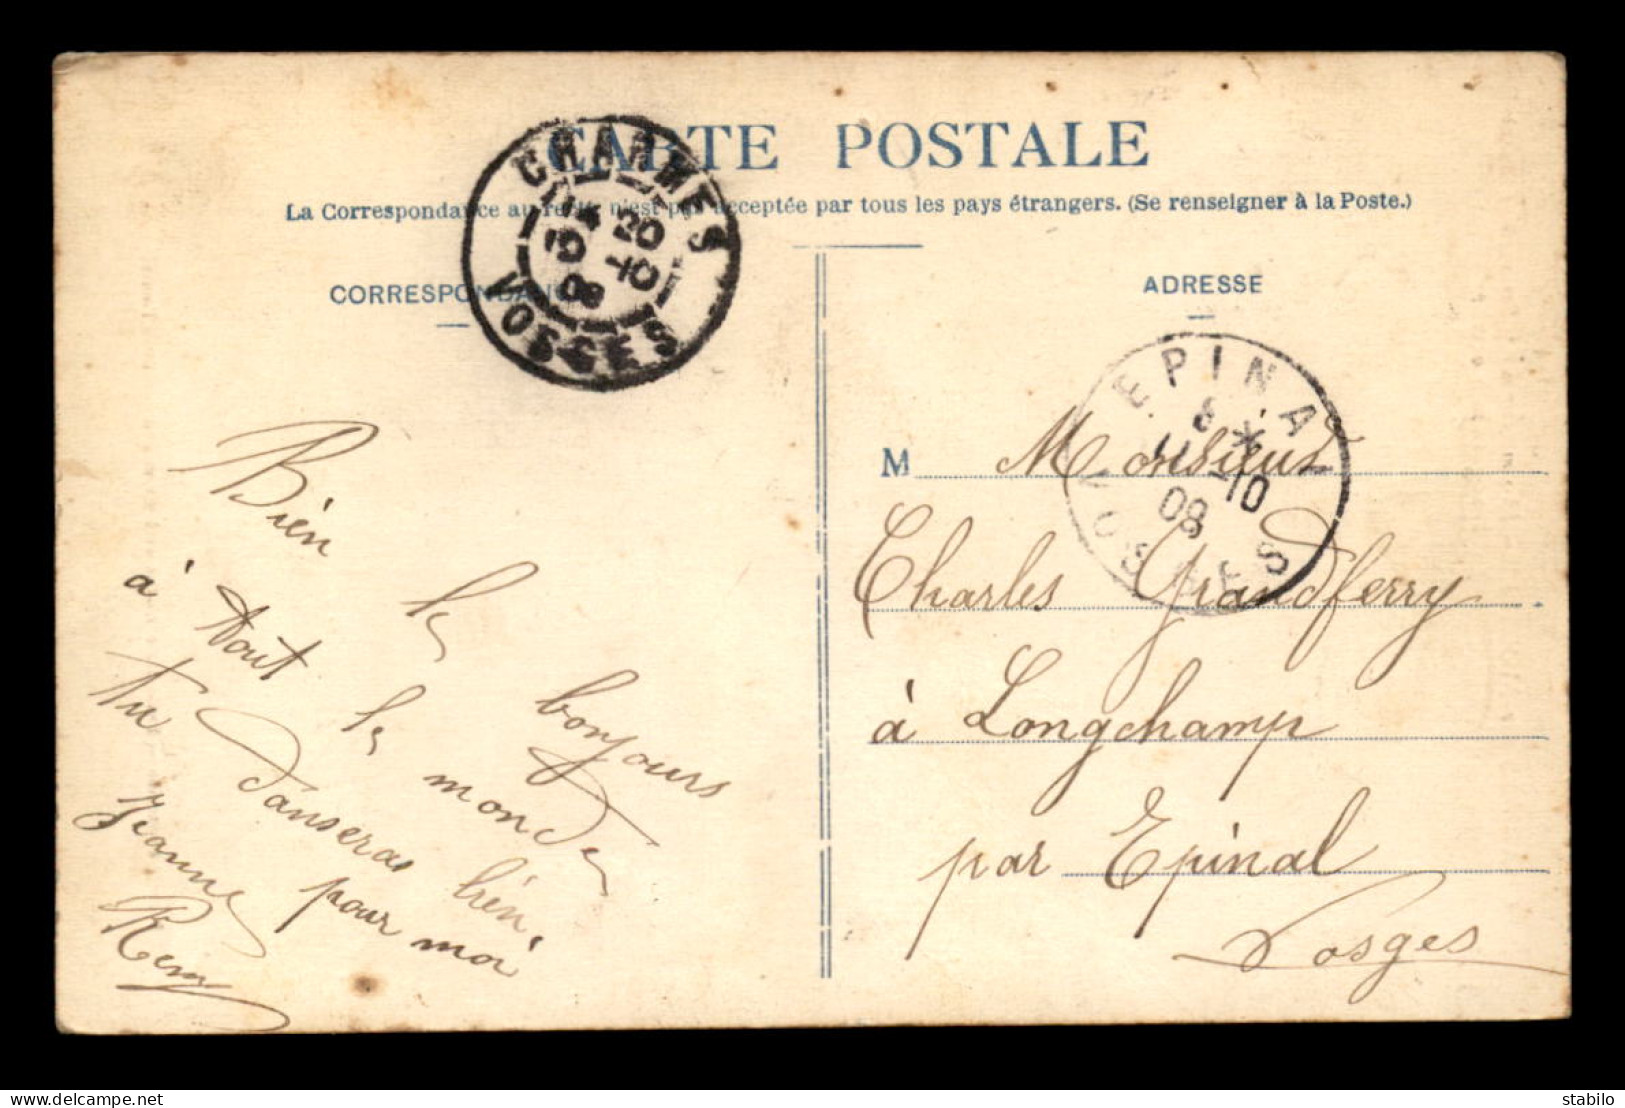 CARTE POSTALE
La Correspondance au recto n'est pas acceptée par tous les pays étrangers. (Se renseigner à la Poste.)
CORRESPONDANCE
ADRESSE
CHARMES
20
10
08
VOSGES
EPINAL
8 *
11 -10
08
VOSGES
Bien le bonjours
à tout le monde
tu danseras bien
pour moi
Jeanne
Rem
M Monsieur
Charles Grandferry
à Longchamp
par Epinal
Vosges
stabilo